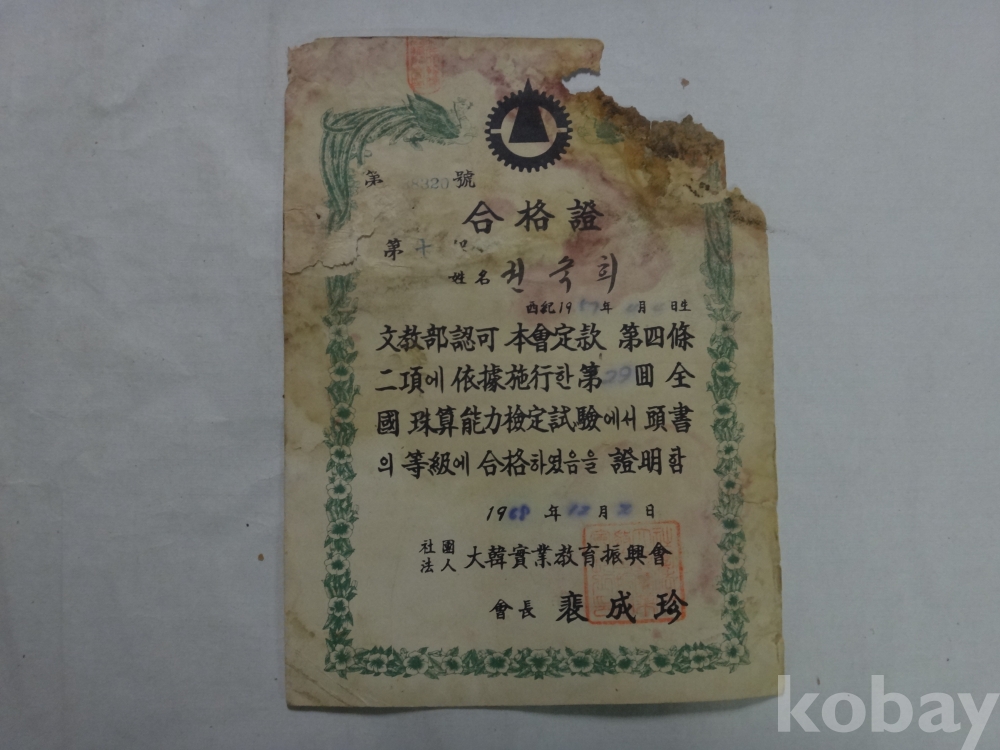 第 8320 號
合格證
第 十
姓名 권국희
西紀19 年 月 日生
文教部認可 本會定款 第四條
二項에 依據施行한 第29回 全
國 珠算能力檢定試驗에서 頭書
의 等級에 合格하였음을 證明함
1968 年 12 月 日
社團法人 大韓實業教育振興會
會長 裵成珍
kobay